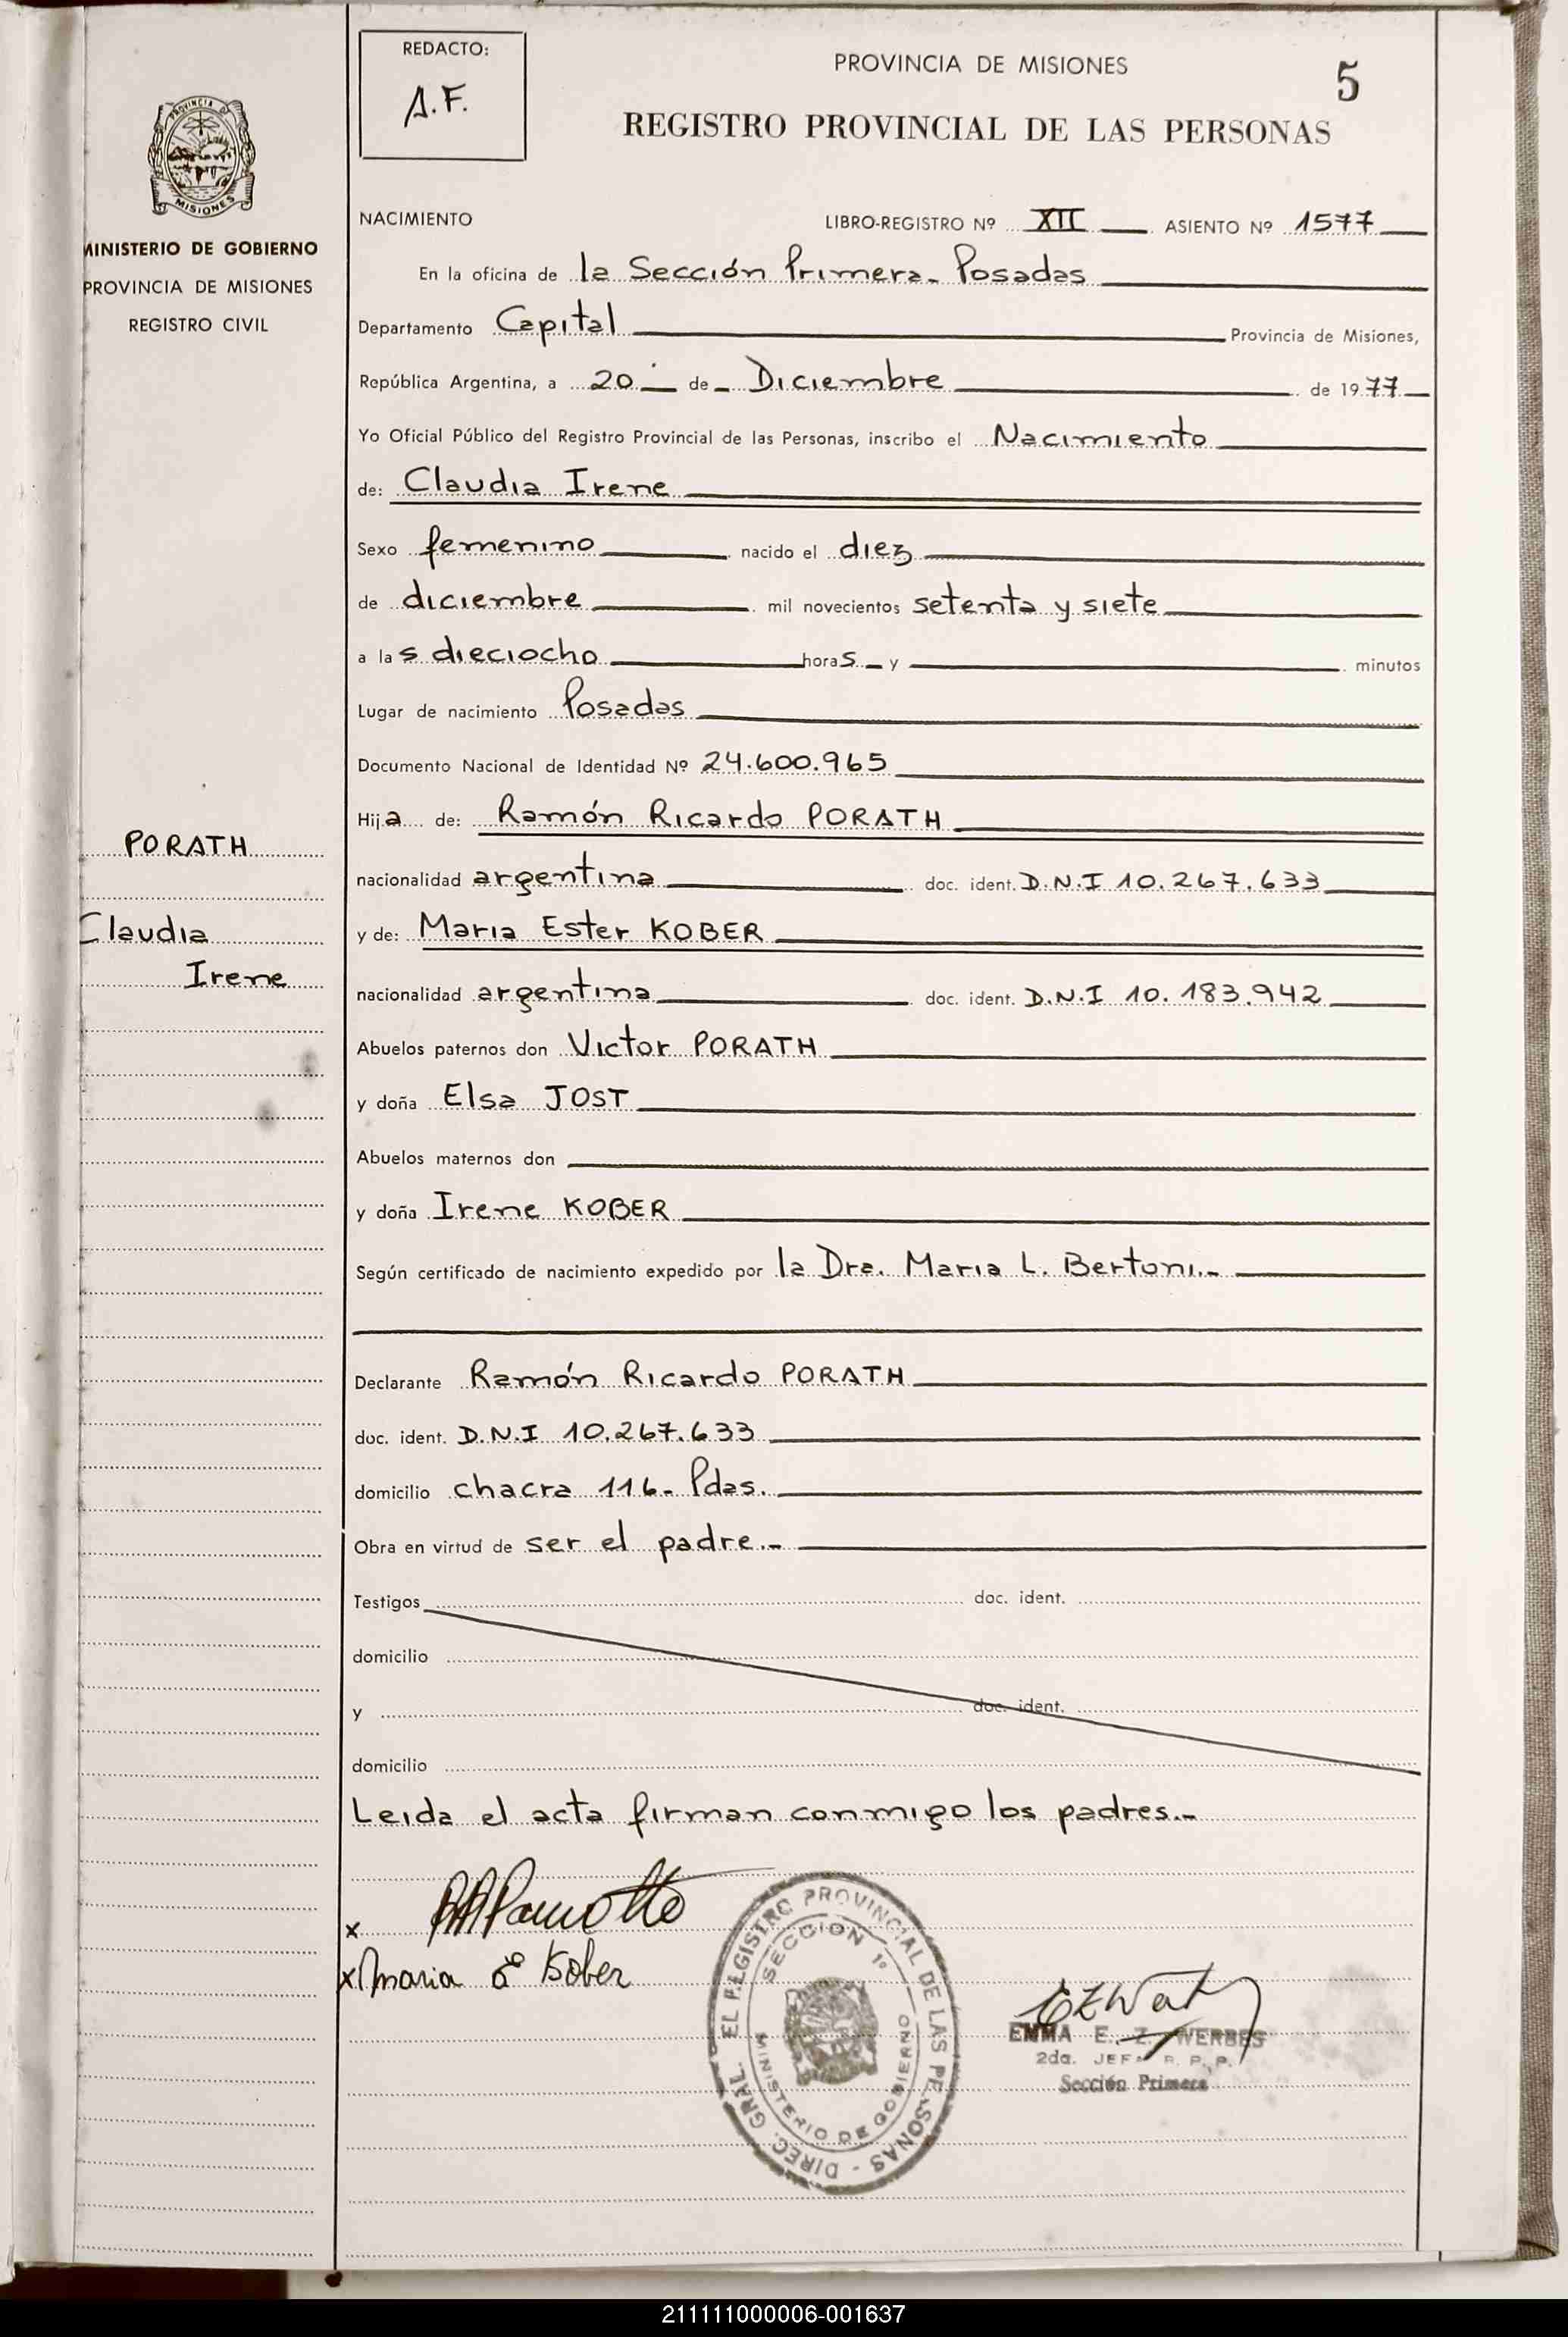 REDACTO:
A.F.
PROVINCIA DE MISIONES
5
REGISTRO PROVINCIAL DE LAS PERSONAS
PROVINCIA DE
MISIONES
MINISTERIO DE GOBIERNO
PROVINCIA DE MISIONES
REGISTRO CIVIL
NACIMIENTO LIBRO-REGISTRO Nº XII ASIENTO Nº 1577
En la oficina de la Sección Primera- Posadas
Departamento Capital Provincia de Misiones,
República Argentina, a 20 de Diciembre de 1977
Yo Oficial Público del Registro Provincial de las Personas, inscribo el Nacimiento
de: Claudia Irene
Sexo femenino nacido el diez
de diciembre mil novecientos setenta y siete
a las dieciocho horas y minutos
Lugar de nacimiento Posadas
Documento Nacional de Identidad Nº 24.600.965
Hija de: Ramón Ricardo PORATH
PORATH
nacionalidad argentina doc. ident. D.N.I 10.267.633
Claudia
y de: Maria Ester KOBER
Irene
nacionalidad argentina doc. ident. D.N.I 10.183.942
Abuelos paternos don Victor PORATH
y doña Elsa JOST
Abuelos maternos don
y doña Irene KOBER
Según certificado de nacimiento expedido por la Dra. Maria L. Bertoni.-
Declarante Ramón Ricardo PORATH
doc. ident. D.N.I 10.267.633
domicilio chacra 116- Pdas.
Obra en virtud de ser el padre.-
Testigos doc. ident.
domicilio
y doc. ident.
domicilio
Leida el acta firman conmigo los padres.-
x
x Maria E Kober
DIREC. GRAL. EL REGISTRO PROVINCIAL DE LAS PERSONAS -
SECCION 1º
MINISTERIO DE GOBIERNO
EMMA E. Z. WERBES
2da. JEFA R. P. P.
Sección Primera
211111000006-001637